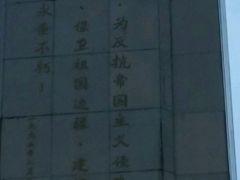 为反抗帝国主义侵
、保卫祖国边疆、建
永垂不朽！